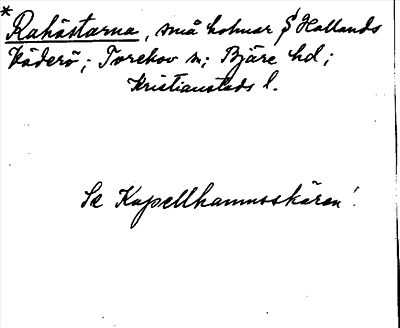 * Rahästarna, små holmar S Hallands
Väderö; Torekov sn; Bjäre hd;
Kristianstads l.
Se Kapellhamnsskären!